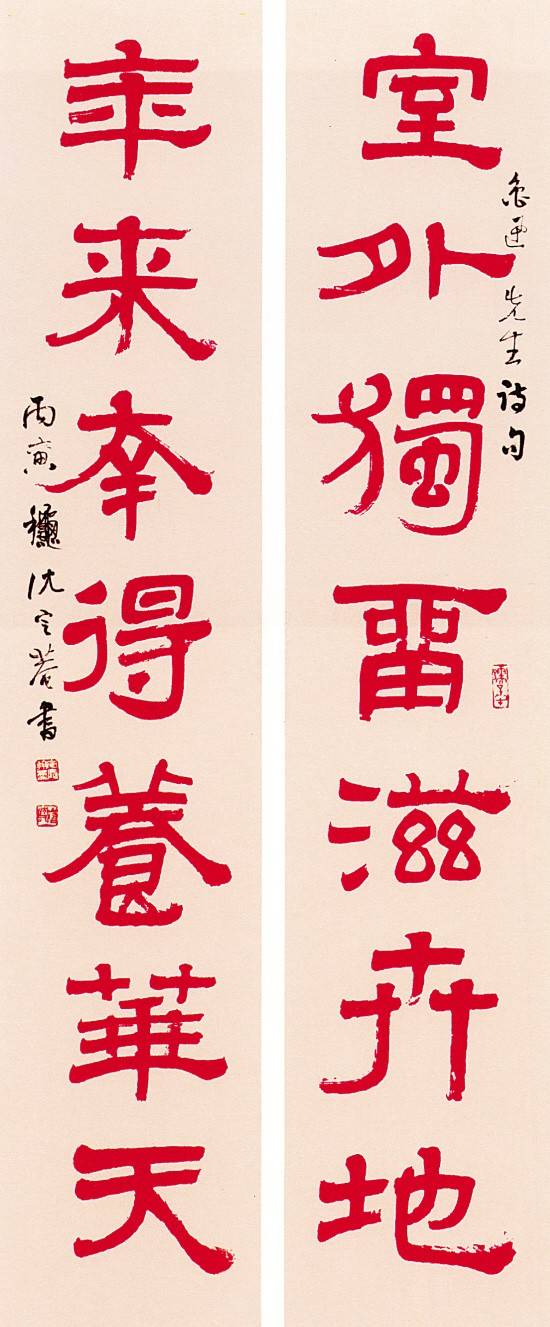 室外獨畱滋卉地
魯迅先生诗句
年来幸得養華天
丙寅龝沈定菴書